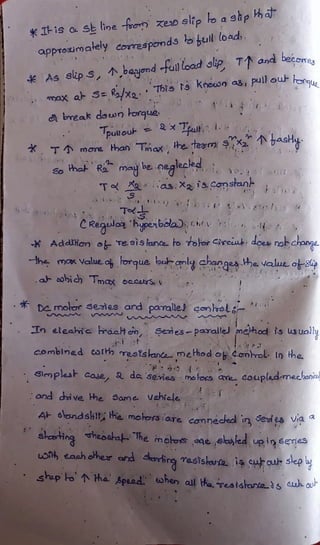 * It is a st line from zero slip to a slip that
approximately corresponds to full load.
* As slip s, ↑ beyond full load slip, T↑ and becomes
max at S = R2/X2. This is known as, pull out torque
or break down torque.
Tpullout = 2 x Tfull
* T↑ more than Tmax, the term s²x2² ↑ fastly.
so that R2² may be neglected
T ∝ X2/S as X2 is constant
T ∝ 1/S
(Regular hyperbola)
* Addition of resistance to rotor circuit does not change
the max value of torque but only changes the value of slip
at which Tmax occurs.
* Dc motor series and parallel control :-
In electric traction, series-parallel method is usually
combined with resistance method of control. In the
simplest case, 2 dc series motors are coupled mechanical
and drive the same vehicle
At standstill, the motors are connected in series via a
starting rheostat. The motors are started up in series
with each other and starting resistance is cut out step by
step to ↑ the speed. when all the resistance is cut out